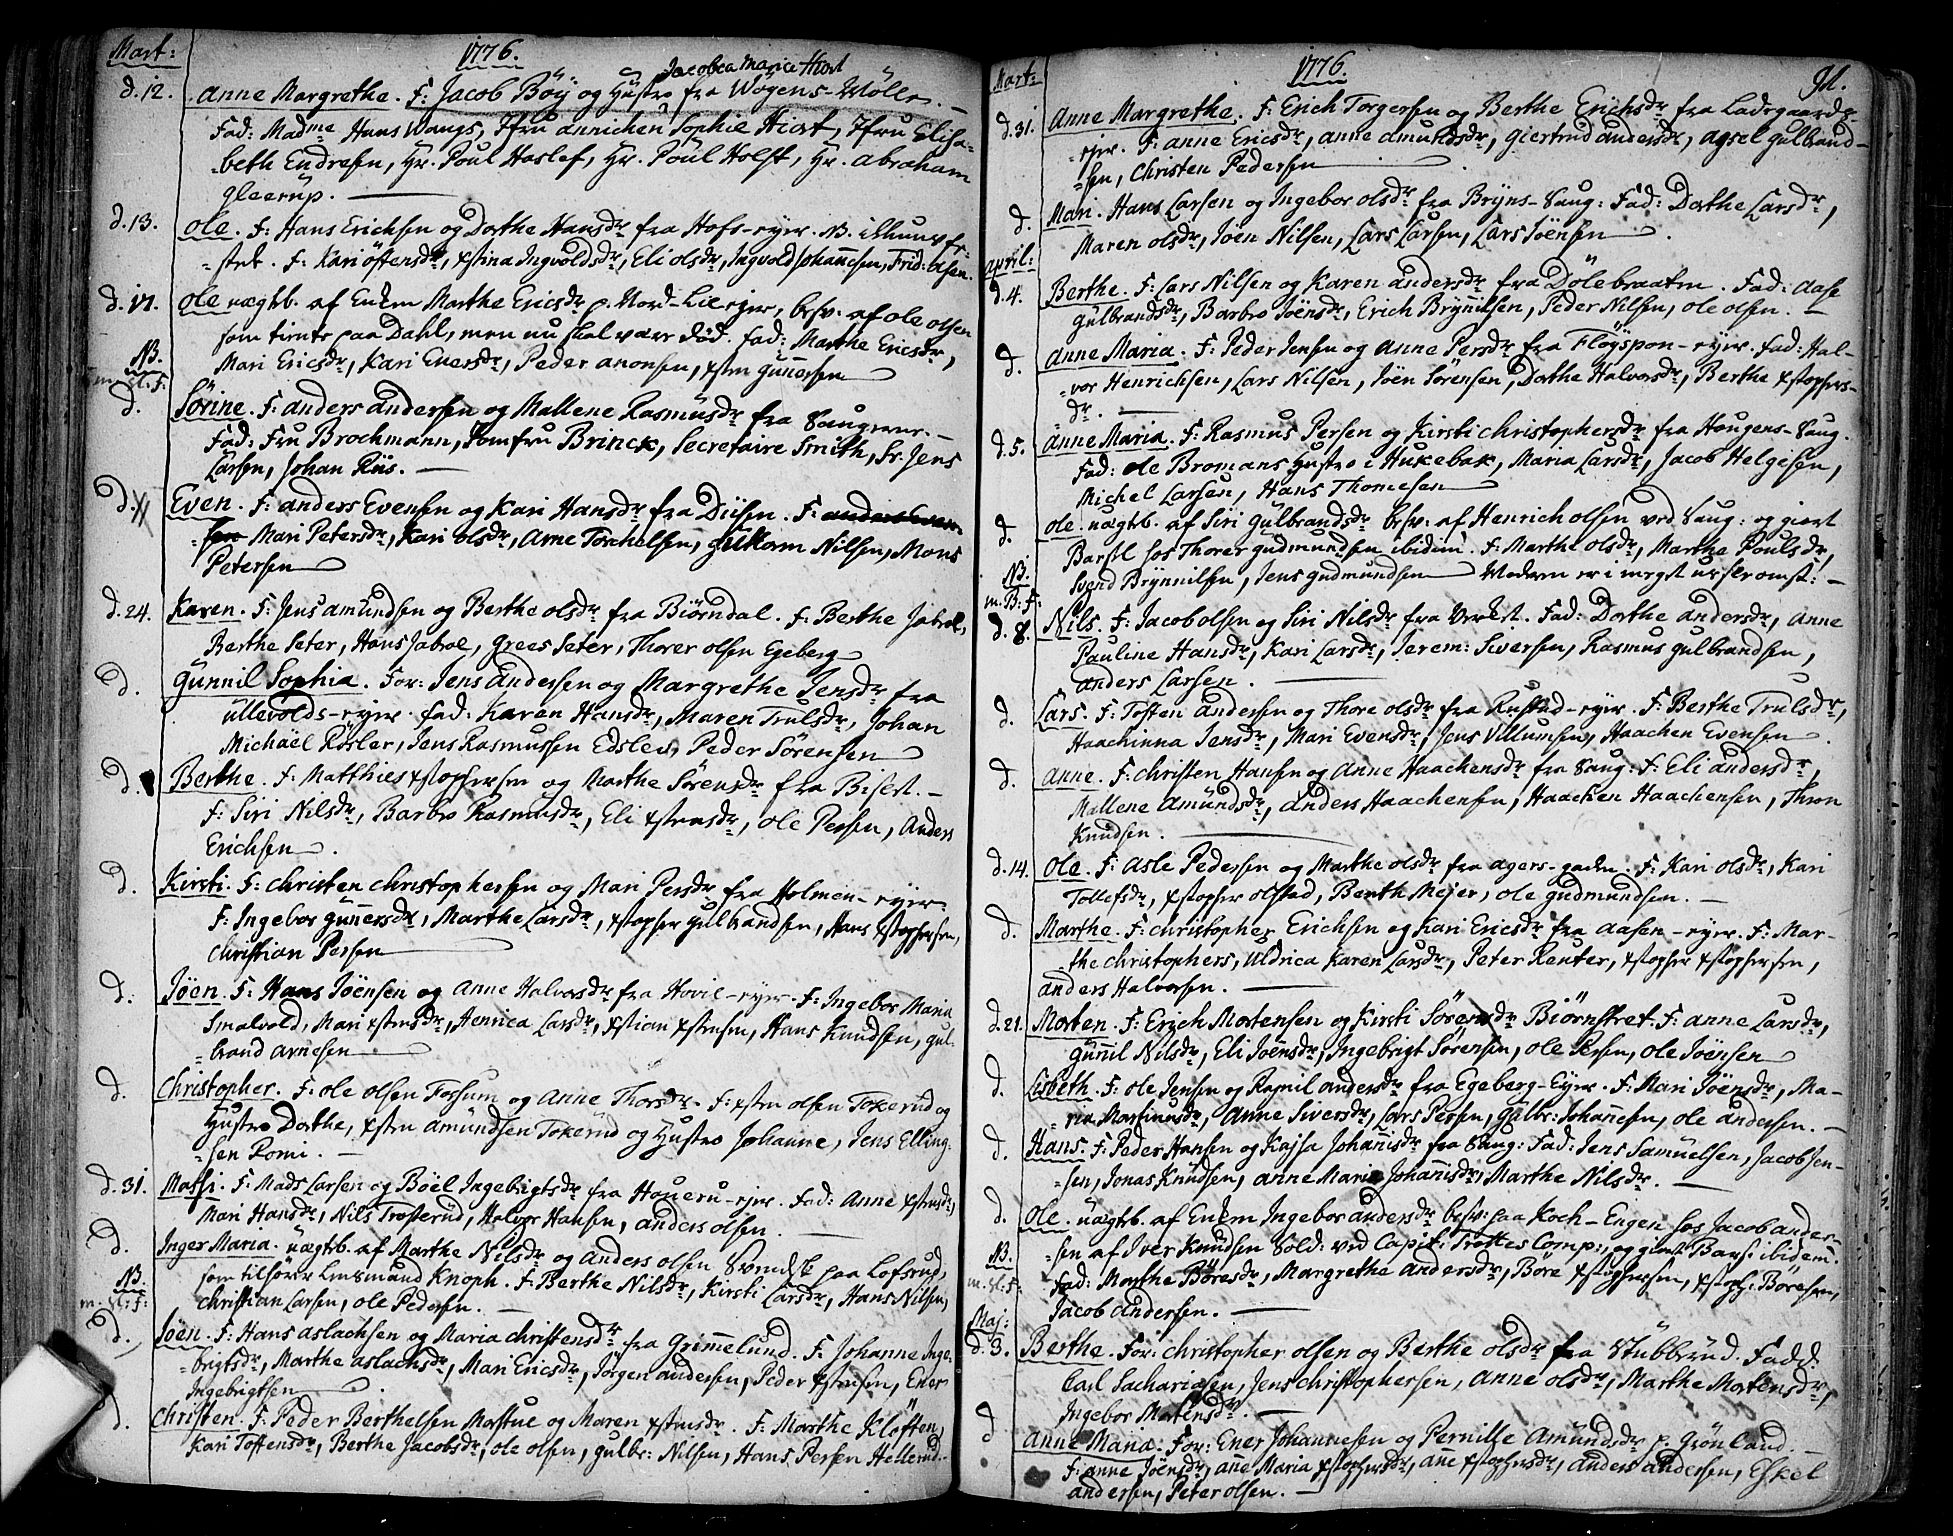 Mart: 1776.
Jacobea Marice Hiort
d. 12. Anne Margrethe. F: Jacob Böÿ og Hustro fra Wögens-Mölle. —
Fad: Madme Hans Waugs, Jfru Annichen Sophie Hiort, Jfru Elisa-
beth Endresen, Hr. Poul Haslef, Hr. Poul Holst, Hr. Abraham
Gleerup. —
d. 13. Ole. F: Hans Erichsen og Dorthe Hansdr fra Hofs-eyer. NB.
stet. F: Kari Östensdr, xstina Ingvoldsdr, Eli olsdr, Ingvold Johannesen, Frid: Olsen.
d. 17. Ole uægtb. af Enken Marthe Ericsdr p. Nord-Lie eyer, besv: af ole olsen
som tiente paa Dahl, men nu skal være död. Fad: Marthe Ericsdr,
NB. Mari Ericsdr, Kari Enersdr, Peder anonsen, xsten gunnersen
m. sl: f:
d. Sörine. F: anders andersen og Mallene Rasmusdr fra Saugene. —
Fad: Fru Brochmann, Jomfru Brinck, Secretaire Smith, Sr. Jens
Larsen, Johan Riis. —
d. Even. F: anders Evensen og Kari Hansdr fra Diisen. F: anders Even-
sen Mari Petersdr, Kari olsdr, Arne Torchelsen, Guttorm Nilsen, Mons
Petersen
d. 24. Karen. F: Jens amundsen og Berthe olsdr fra Biörndal. F: Berthe Jabroe,
Berthe Seter, Hans Jabroe, Grees Seter, Thorer olsen Egeberg
d. Gunnil Sophia. For: Jens Andersen og Margrethe Jensdr fra
ullevolds-eyer. Fad: Karen Hansdr, Maren Trulsdr, Johan
Michäel Rösler, Jens Rasmussen Edslev, Peder Sörensen
d. Berthe. F: Matthies xstophersen og Marthe Sörensdr fra Bislet. —
F: Siri Nilsdr, Barbro Rasmusdr, Eli xstensdr, Ole Persen, Anders
Erichsen.
d. Kirsti. F: Christen Christophersen og Mari Persdr fra Holmen-eyer.
F: Ingebor gunnersdr, Marthe Larsdr, xstopher gulbrandsen, Hans xstophersen,
Christian Persen
d. Jöen. F: Hans Jöensen og Anne Halvorsdr fra Hovil-eyer. F: Ingebor Maria
Smalvold, Mari xstensdr, Hennica Larsdr, xstian xstensen, Hans Knudsen, gul-
brand arnesen
d. Christopher. F: ole olsen Fossum og Anne Thorsdr. F: xsten olsen Tokerud og
Hustro Dorthe, xsten amundsen Tokerud og Hustro Johanne, Jens Elling-
sen Romi. —
d. 31. Massi. F: Mads Larsen og Böel Ingebrigtsdr fra Haueru-eyer. Fad: Anne xstensdr,
Mari Hansdr, Nils Trosterud, Halvor Hansen, anders olsen. —
d. Inger Maria. uægtb. af Marthe Nilsdr og anders olsen Svendsk paa Lofsrud,
NB. som tilhörer Knoph. F: Berthe Nilsdr, Kirsti Larsdr, Hans Nilsen,
m. sl: f: Christian Larsen, ole Pedersen. —
d. Jöen. F: Hans aslachsen og Maria Christensdr fra Grimelund. F: Johanne Inge-
brigtsdr, Marthe aslachsdr, Mari Ericsdr, Jörgen andersen, Peder xstensen, Ener
Ingebrigtsen
d. Christen. F: Peder Berthelsen Mastue og Maren xstensdr. F: Marthe Klöften,
Kari Tostensdr, Berthe Jacobsdr, ole olsen, gulbr: Nilsen, Hans Persen Hellerud.
Mart: 1776. 91.
d. 31. Anne Margrethe. F: Erich Torgersen og Berthe Erichsdr fra Ladegaards-
eyer. F: anne Ericsdr, anne amundsdr, Giertrud andersdr, agsel gulbrand-
sen, Christen Pedersen
d. Mari. Hans Larsen og Ingebor olsdr fra Bryns-Saug: Fad: Dorthe Larsdr,
Maren olsdr, Jöen Nilsen, Lars Larsen, Lars Jöensen.
april:
d. 4. Berthe. F: Lars Nilsen og Karen andersdr fra Dölebraaten. Fad: Aase
gulbrandsdr, Barbro Jöensdr, Erich Brynilsen, Peder Nilsen, ole olsen. —
d. Anne Maria. F: Peder Jensen og Anne Persdr fra Flöyspon-eyer. Fad: Hal-
vor Henrichsen, Lars Nilsen, Jöen Sörensen, Dorthe Halvorsdr, Berthe xstophers-
dr. —
d. 5. Anne Maria. F: Rasmus Persen og Kirsti Christophersdr fra Hougens-Saug.
Fad: ole Bromans Hustro i Hukebak, Maria Larsdr, Jacob Helgesen,
Michel Larsen, Hans Thomesen
d. ole. uægtb. af Siri gulbrandsdr besv: af Henrich olsen ved Saug: og giort
Barsl hos Thorer gudmundsen ibidem. F: Marthe olsdr, Marthe Poulsdr,
NB. Svend Brynnilsen, Jens gudmundsen Moderen er i meget ussle omst: —
m. B: f:
d. 8. Nils. F: Jacob olsen og Siri Nilsdr fra Verket. Fad: Dorthe andersdr, Anne
Pauline Hansdr, Kari Larsdr, Jerem: Siversen, Rasmus gulbrandsen,
anders Larsen. —
d. Lars. F: Tosten andersen og Thore olsdr fra Rustad-eyer. F: Berthe Trulsdr,
Haachinna Jensdr, Mari Evensdr, Jens Villumsen, Haachen Evensen.
d. Anne. F: Christen Hansen og Anne Haachensdr fra Saug: F: Eli andersdr,
Mallene amundsdr, anders Haachensen, Haachen Haachensen, Thron
Knudsen. —
d. 14. Ole. F: Asle Pedersen og Marthe olsdr fra agers-gaden. F: Kari olsdr, Kari
Tollefsdr, xstopher olstad, Benth Mejer, ole gudmundsen. —
d. Marthe. F: Christopher Erichsen og Kari Ericsdr fra aasen-eyer. F: Mar-
the Christophers, Uldrica Karen Larsdr, Peter Reuter, xstopher xstophersen,
anders Halversen. —
d. 21. Morten. F: Erich Mortensen og Kirsti Sörensdr Biörnstret. F: anne Larsdr,
gunnil Nilsdr, Eli Joensdr, Ingebrigt Sörensen, ole Persen, ole Jöensen
d. Lisbeth. F: ole Jensen og Ragnil andersdr fra Egeberg-Eyer. F: Mari Jöensdr, Ma-
ria Martinusdr, Anne Siversdr, Lars Persen, Gulbr: Johannesen, ole andersen. —
d. Hans. F: Peder Hansen og Kajsa Johanisdr fra Saug: Fad: Jens Samuelsen, Jacob Jen-
sen, Jonas Knudsen, Anne Maria Johanisdr, Marthe Nilsdr. —
d. Ole. uægtb. af Enken Ingebor andersdr besv: paa Koch-Engen hos Jacob ander-
NB. sen af Iver Knudsen Sold: ved Capit: Trottes Comp:, og giort Bars: ibidem.
m. sl: f: Fad: Marthe Böresdr, Margrethe andersdr, Böre xstophersen, xstoph: Böresen,
Jacob Andersen. —
Maj:
d. 3. Berthe. For: Christopher olsen og Berthe olsdr fra Stubberud. Fadd:
Carl Sachariasen, Jens Christophersen, Anne olsdr, Marthe Mortensdr,
Ingebor Mortensdr. —
d Anne Maria. For: Ener Johannesen og Pernille Amundsdr p. Grönland. —
F: anne Jöensdr, añe Maria xstophersdr, añe xstophersdr, anders andersen, Eskel
andersen, Peter olsen. —